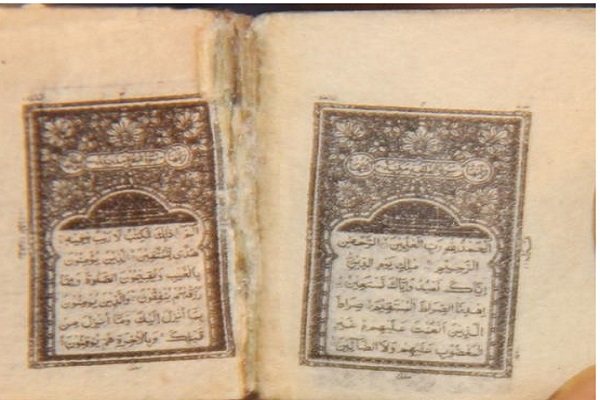 الحمد لله رب العلمين الرحمن
الرحيم ملك يوم الدين
إياك نعبد وإياك نستعين
اهدنا الصراط المستقيم صراط
الذين أنعمت عليهم غير
المغضوب عليهم ولا الضالين
الم ذلك الكتب لا ريب فيه
هدى للمتقين الذين يؤمنون
بالغيب ويقيمون الصلوة ومما
رزقنهم ينفقون والذين يؤمنون
بما أنزل إليك وما أنزل من
قبلك وبالآخرة هم يوقنون